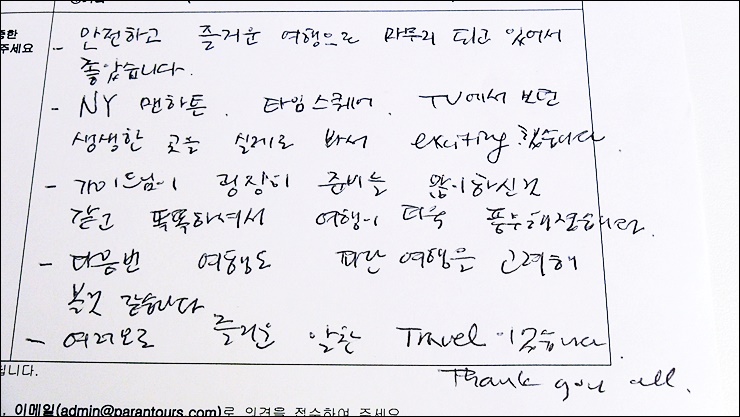 중한
주세요
- 안전하고 즐거운 여행으로 마무리 되고 있어서
좋았습니다.
- NY 맨하튼, 타임스퀘어, TV에서 보던
생생한 곳을 실제로 봐서 exciting 했습니다.
- 가이드님이 굉장히 준비를 많이하신것
같고 똑똑하셔서 여행이 더욱 풍부해졌습니다.
- 다음번 여행도 파란 여행을 고려해
볼것 같습니다
- 여러모로 즐거운 알찬 Travel 이었습니다.
Thank you all.
됩니다.
이메일(admin@parantours.com)로 의견을 접수하여 주세요